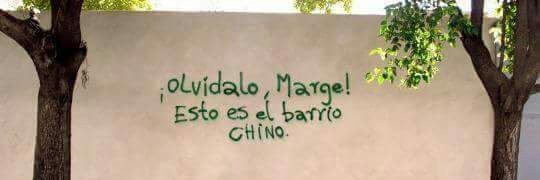 ¡Olvidalo, Marge!
Esto es el barrio
CHINO.